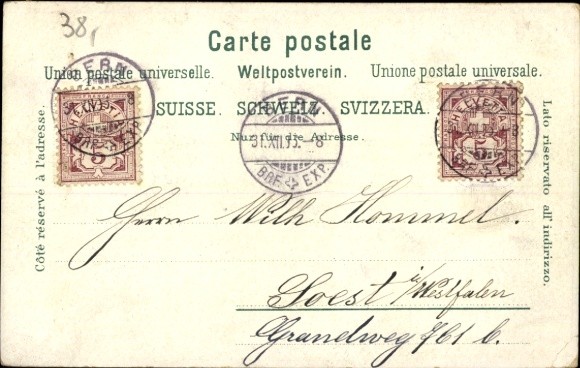 38,
Carte postale
Union postale universelle. Weltpostverein. Unione postale universale.
SUISSE. SCHWEIZ. SVIZZERA.
Nur für die Adresse.
Côté réservé à l'adresse.
Lato riservato all' indirizzo.
BERN
BRF. EXP.
HELVETIA
5
BERN
31.XII.95.-8
BRF. EXP.
BERN
HELVETIA
5
Herrn Wilh Hommel.
Soest i/Westfalen
Grandweg 761 b.